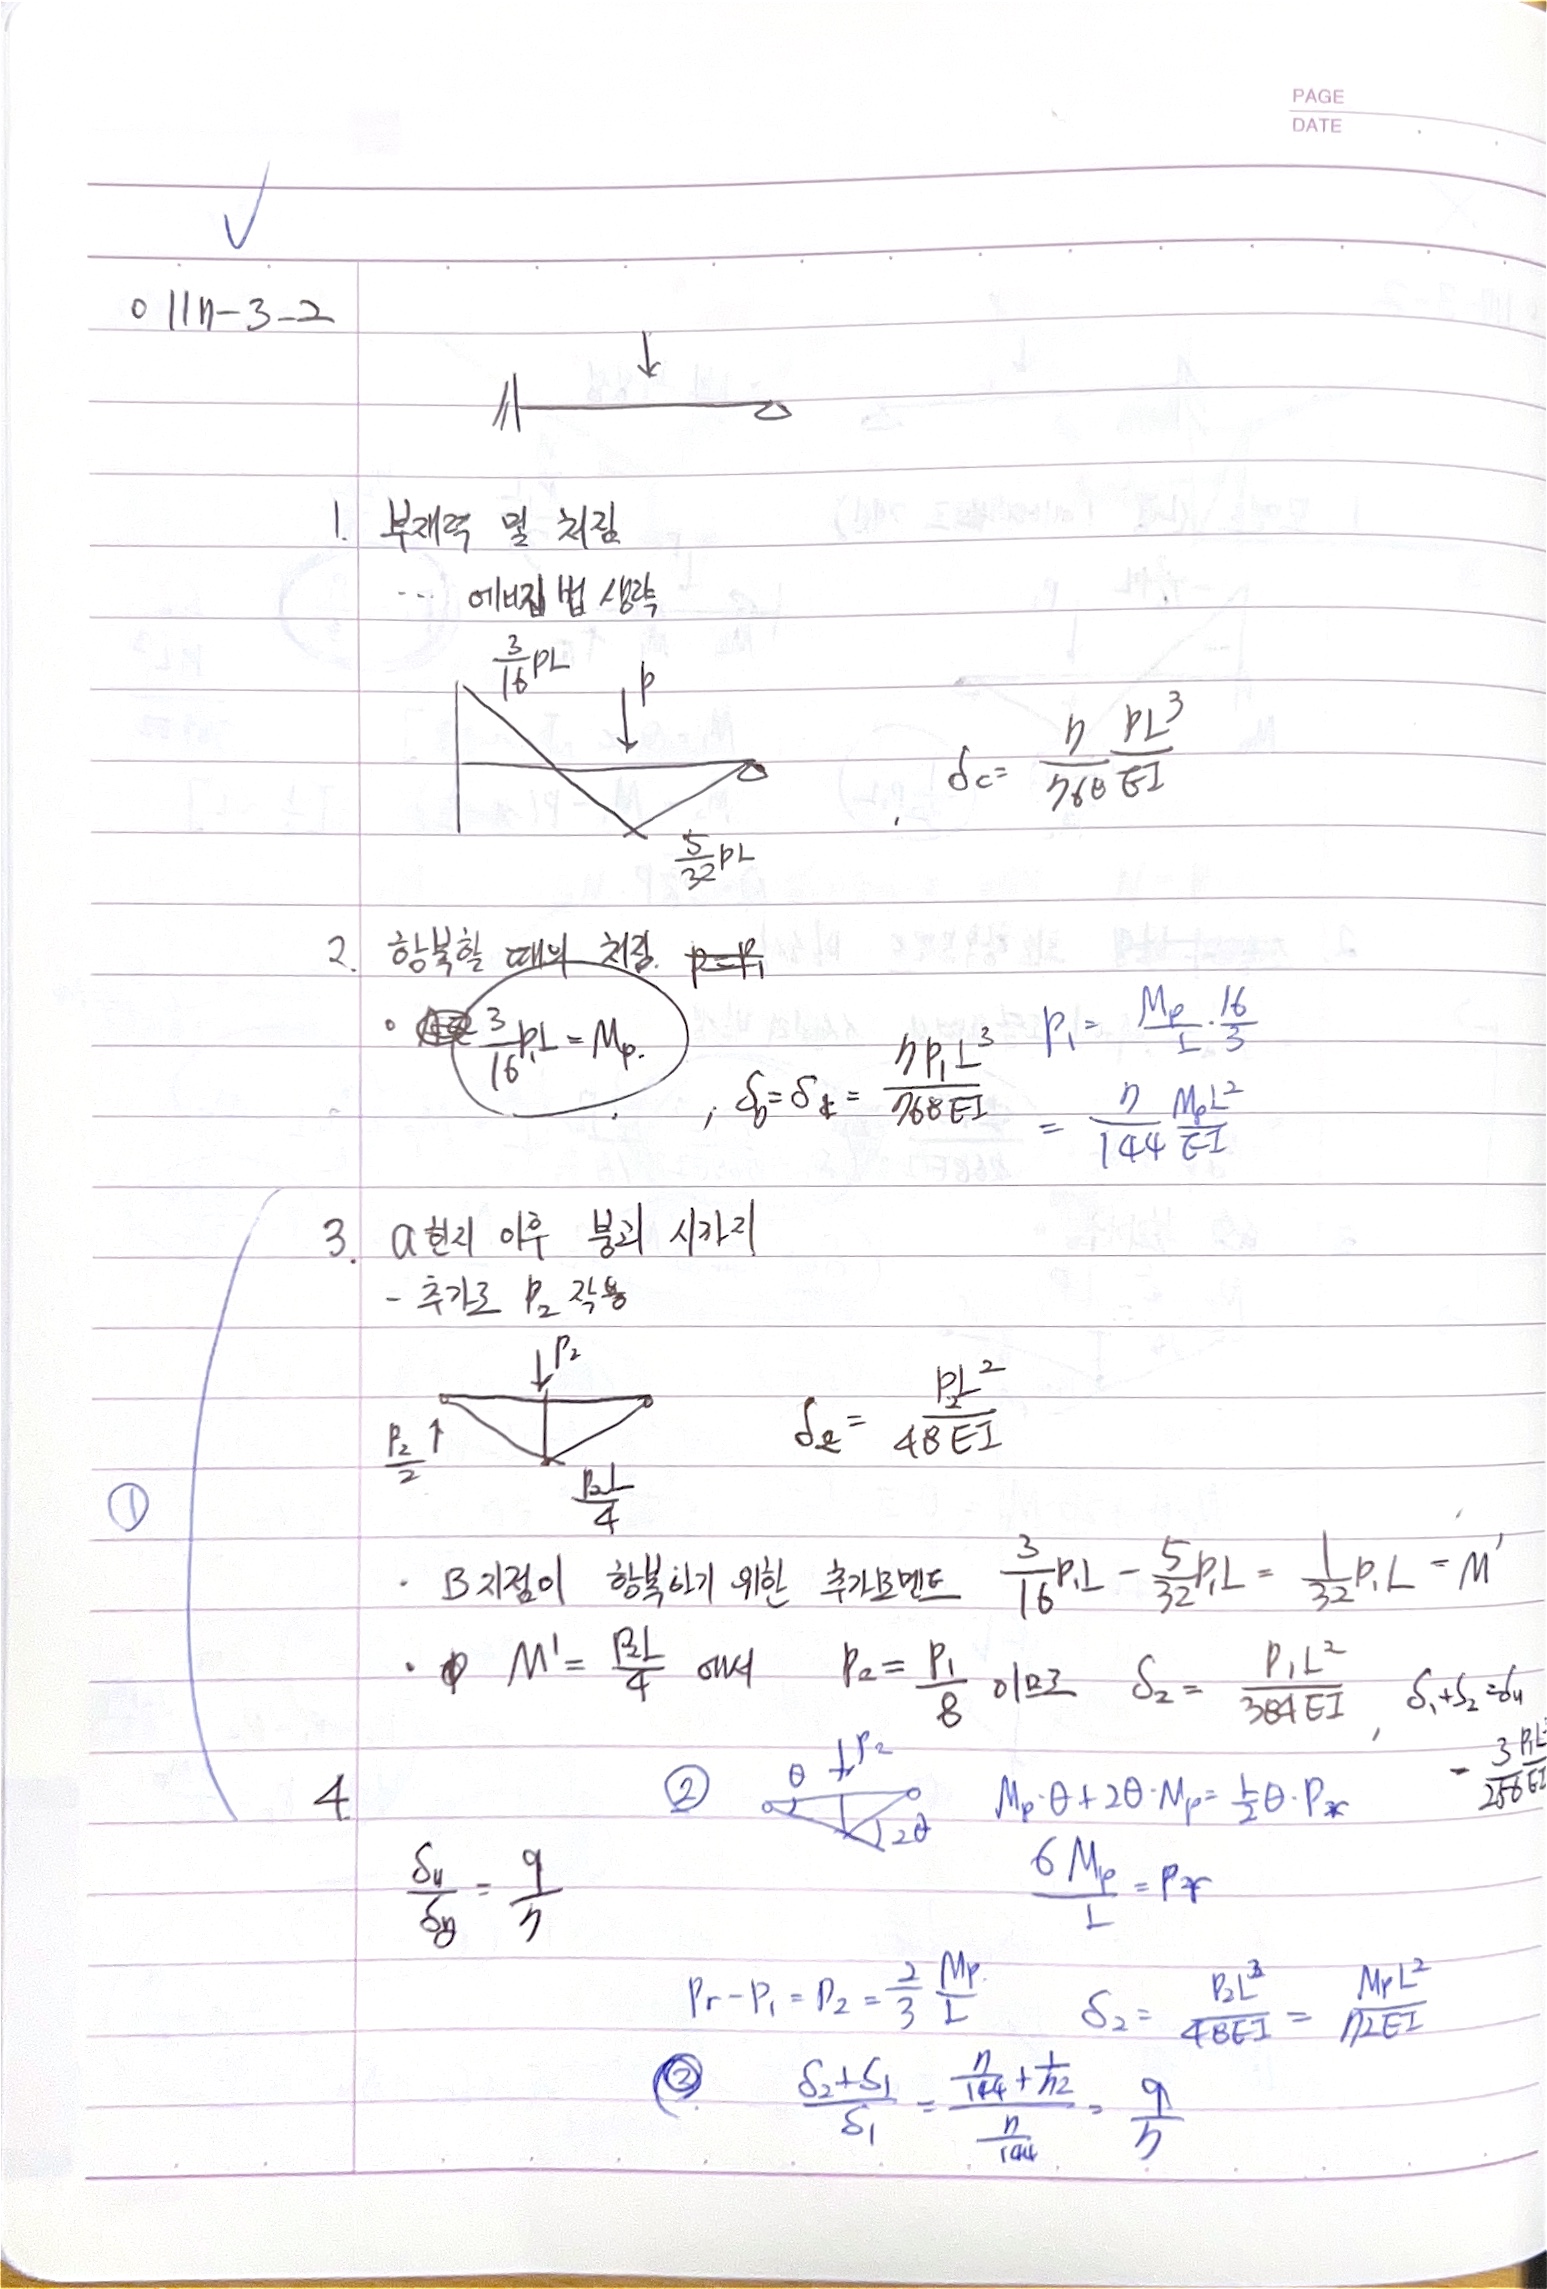 PAGE
DATE
o 117-3-2
1. 부재력 및 처짐
... 에너지법 생략
3/16 PL
P
δc = 7/768 PL³/EI
5/32 PL
2. 항복할 때의 처짐. P=P₁
· 3/16 P₁L = Mp.
, δy = δ₁ = 7P₁L³/768EI
P₁ = Mp/L · 16/3
= 7/144 MpL²/EI
3. a힌지 이후 붕괴 시까지
- 추가로 P₂ 작용
P₂
P₂/2
P₂L/4
δ₂ = P₂L²/48EI
①
· B지점이 항복하기 위한 추가모멘트 3/16 P₁L - 5/32 P₁L = 1/32 P₁L = M'
· M' = P₂L/4 에서 P₂ = P₁/8 이므로 δ₂ = P₁L²/384EI , δ₁+δ₂=δu
= 3/256 P₁L³/EI
4
② θ P₂ 2θ
Mp·θ + 2θ·Mp = L/2 θ·Pr
6Mp/L = Pr
δu/δy = 9/7
Pr - P₁ = P₂ = 2/3 Mp/L
δ₂ = P₂L³/48EI = MpL²/72EI
③ (δ₂+δ₁)/δ₁ = (7/144 + 1/72)/(7/144) = 9/7